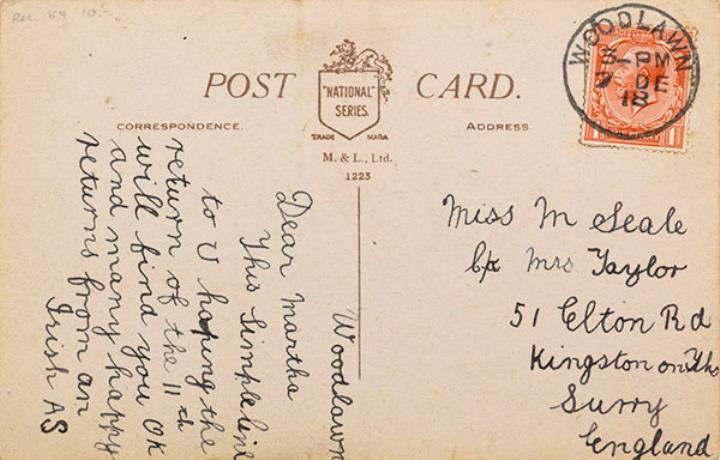 Rec. 89 10.-
POST CARD.
"NATIONAL"
SERIES.
TRADE MARK
CORRESPONDENCE.
ADDRESS
M. & L., Ltd.
1223
WOODLAWN
3-PM
7 DE
18
1 1
Woodlawn
Dear Martha
This Simple line
to U hoping the
return of the 11th
will find you OK
and many happy
returns from an
Irish AS
Miss M Seale
c/o Mrs Taylor
51 Elton Rd
Kingston on Ths
Surry
England